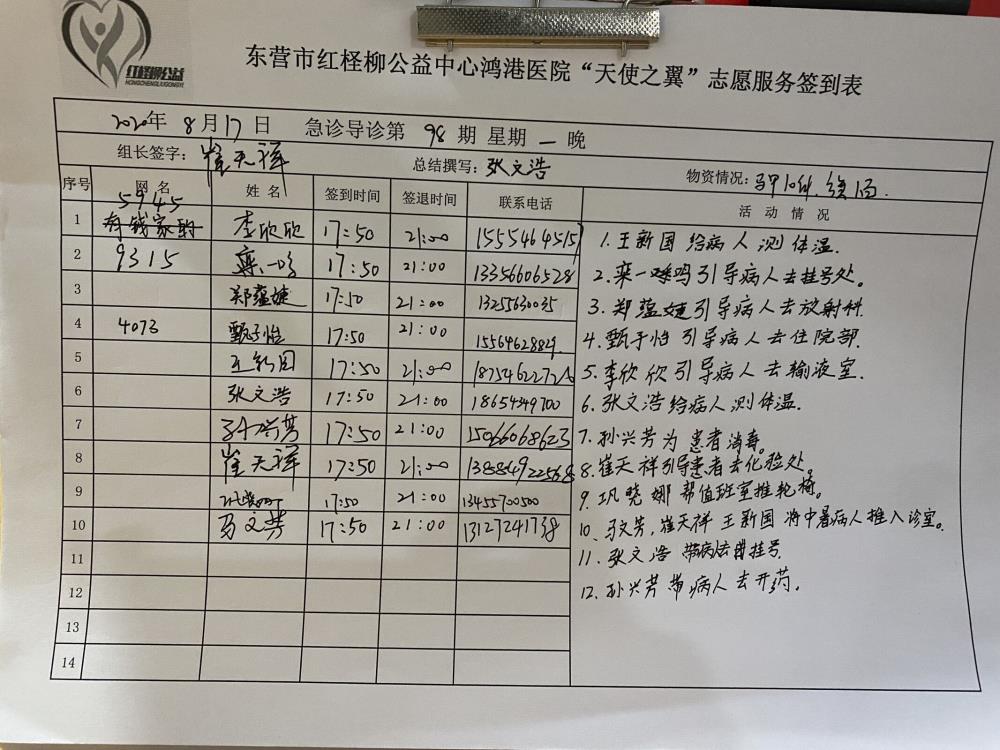 红柽柳公益
HONGCHENGLIUGONGYI
东营市红柽柳公益中心鸿港医院“天使之翼”志愿服务签到表
2020年 8月17日 急诊导诊第 98 期 星期 一 晚
组长签字: 崔天祥 总结撰写: 张文浩 物资情况: 马甲10件.
序号 网名 姓名 签到时间 签退时间 联系电话 活动情况
5945
1 有钱家的 李欣欣 17:50 21:00 1555464515
2 9315 栾一 17:50 21:00 13356606528
3 郑蕴婕 17:50 21:00 1325630035
4 4073 甄予怡 17:50 21:00 1556462884
5 王新国 17:50 21:00
6 张文浩 17:50 21:00 18654349700
7 孙兴芳 17:50 21:00 15066068623
8 崔天祥 17:50 21:00
9 17:50 21:00 13455700500
10 马文芳 17:50 21:00
11
12
13
14
1. 王新国 给病人 测体温.
2. 栾一 引导病人去挂号处。
3. 郑蕴婕引导病人去放射科.
4. 甄予怡 引导病人去住院部.
5. 李欣欣引导病人去输液室.
6. 张文浩给病人测体温.
7. 孙兴芳为患者消毒。
8. 崔天祥引导患者去化验处。
9. 巩晓娜 帮值班室推轮椅。
10、马文芳,崔天祥 王新国 将中暑病人推入诊室。
11. 张文浩 带病 去 挂号.
12. 孙兴芳带病人去开药。